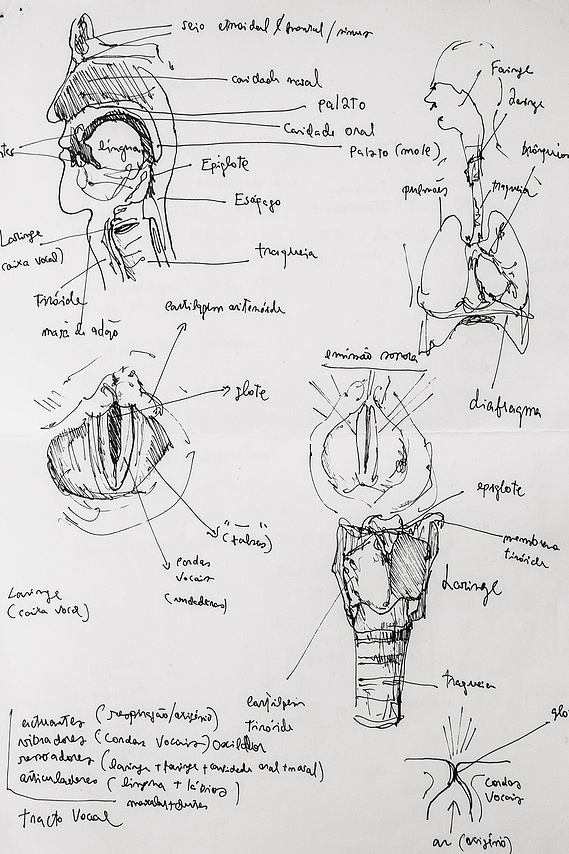 seio etmoidal / frontal / sinus
cavidade nasal
palato
Cavidade oral
palato (mole)
língua
Epiglote
Esófago
Laringe
(caixa vocal)
traqueia
Tiróide
maçã de adão
Faringe
Laringe
brônquios
pulmões
traqueia
diafragma
cartilagem aritenóide
glote
" — "
(falsas)
cordas
vocais
(verdadeiras)
Laringe
(caixa vocal)
emissão sonora
epiglote
membrana
tiróide
Laringe
cartilagem
tiróide
traqueia
glo
cordas
vocais
ar (oxigénio)
actuantes (respiração/oxigénio)
vibradores (cordas vocais) oscilador
ressoadores (laringe + faringe + cavidade oral + nasal)
articuladores (língua + lábios)
maxilar + dentes
tracto vocal